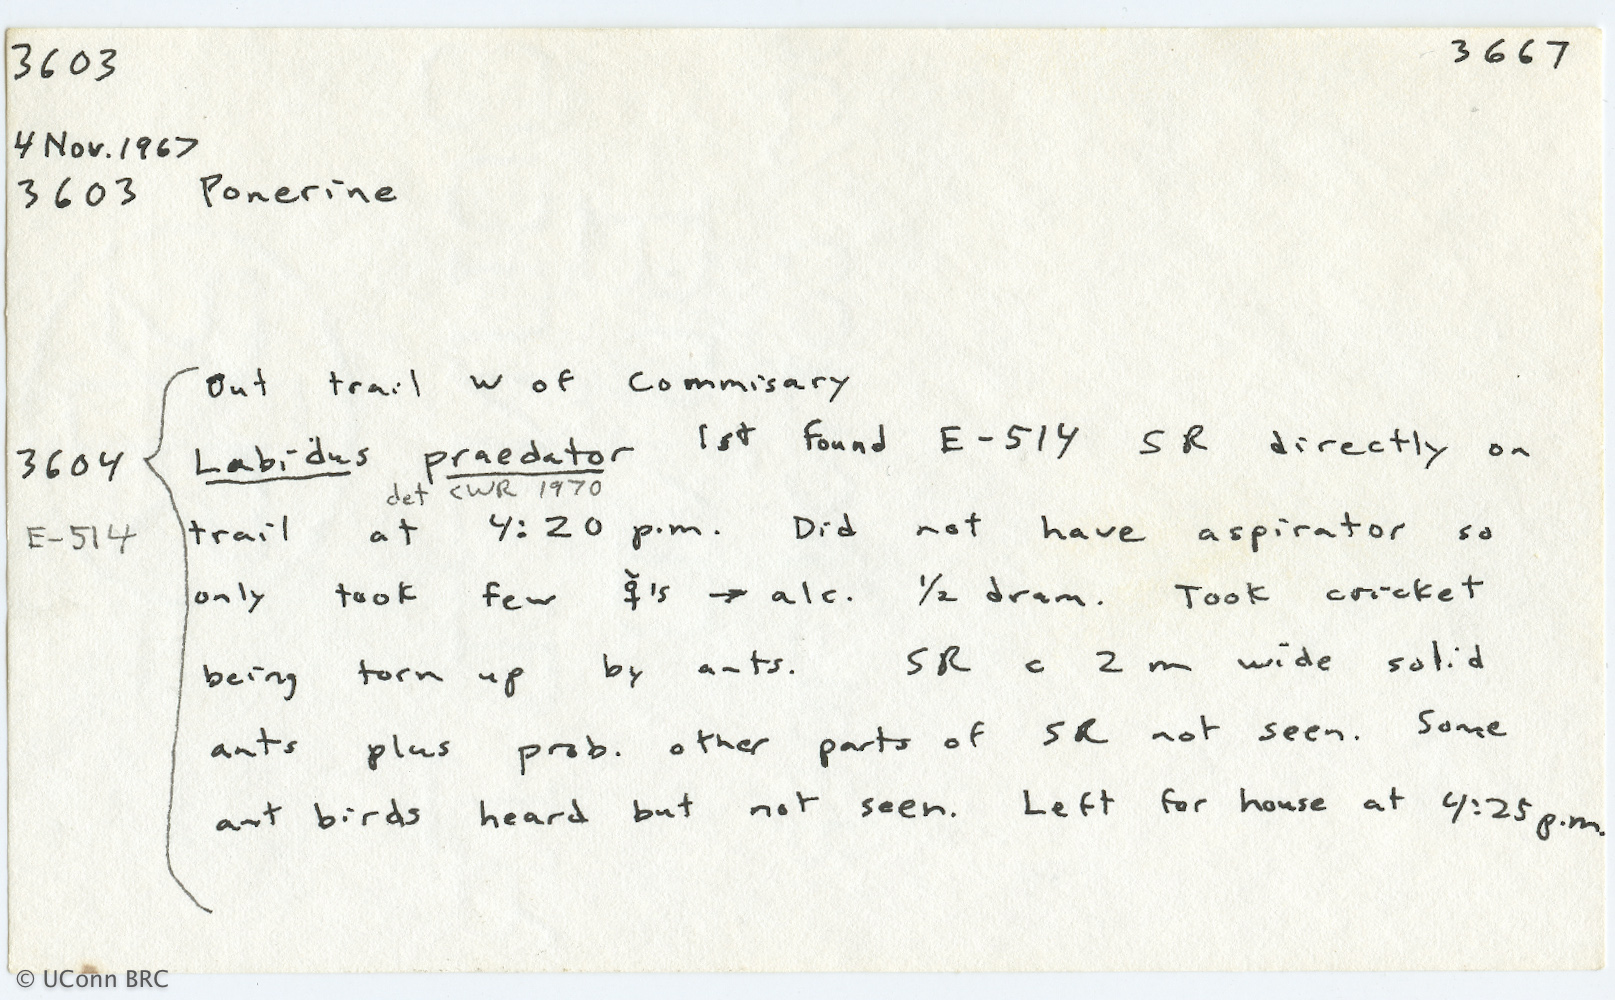 3603 3667
4 Nov. 1967
3603 Ponerine
Out trail W of Commisary
3604 Labidus praedator 1st found E-514 SR directly on
det CWR 1970
E-514 trail at 4:20 p.m. Did not have aspirator so
only took few ☿'s → alc. 1/2 dram. Took cricket
being torn up by ants. SR c 2 m wide solid
ants plus prob. other parts of SR not seen. Some
ant birds heard but not seen. Left for house at 4:25 p.m.
© UConn BRC